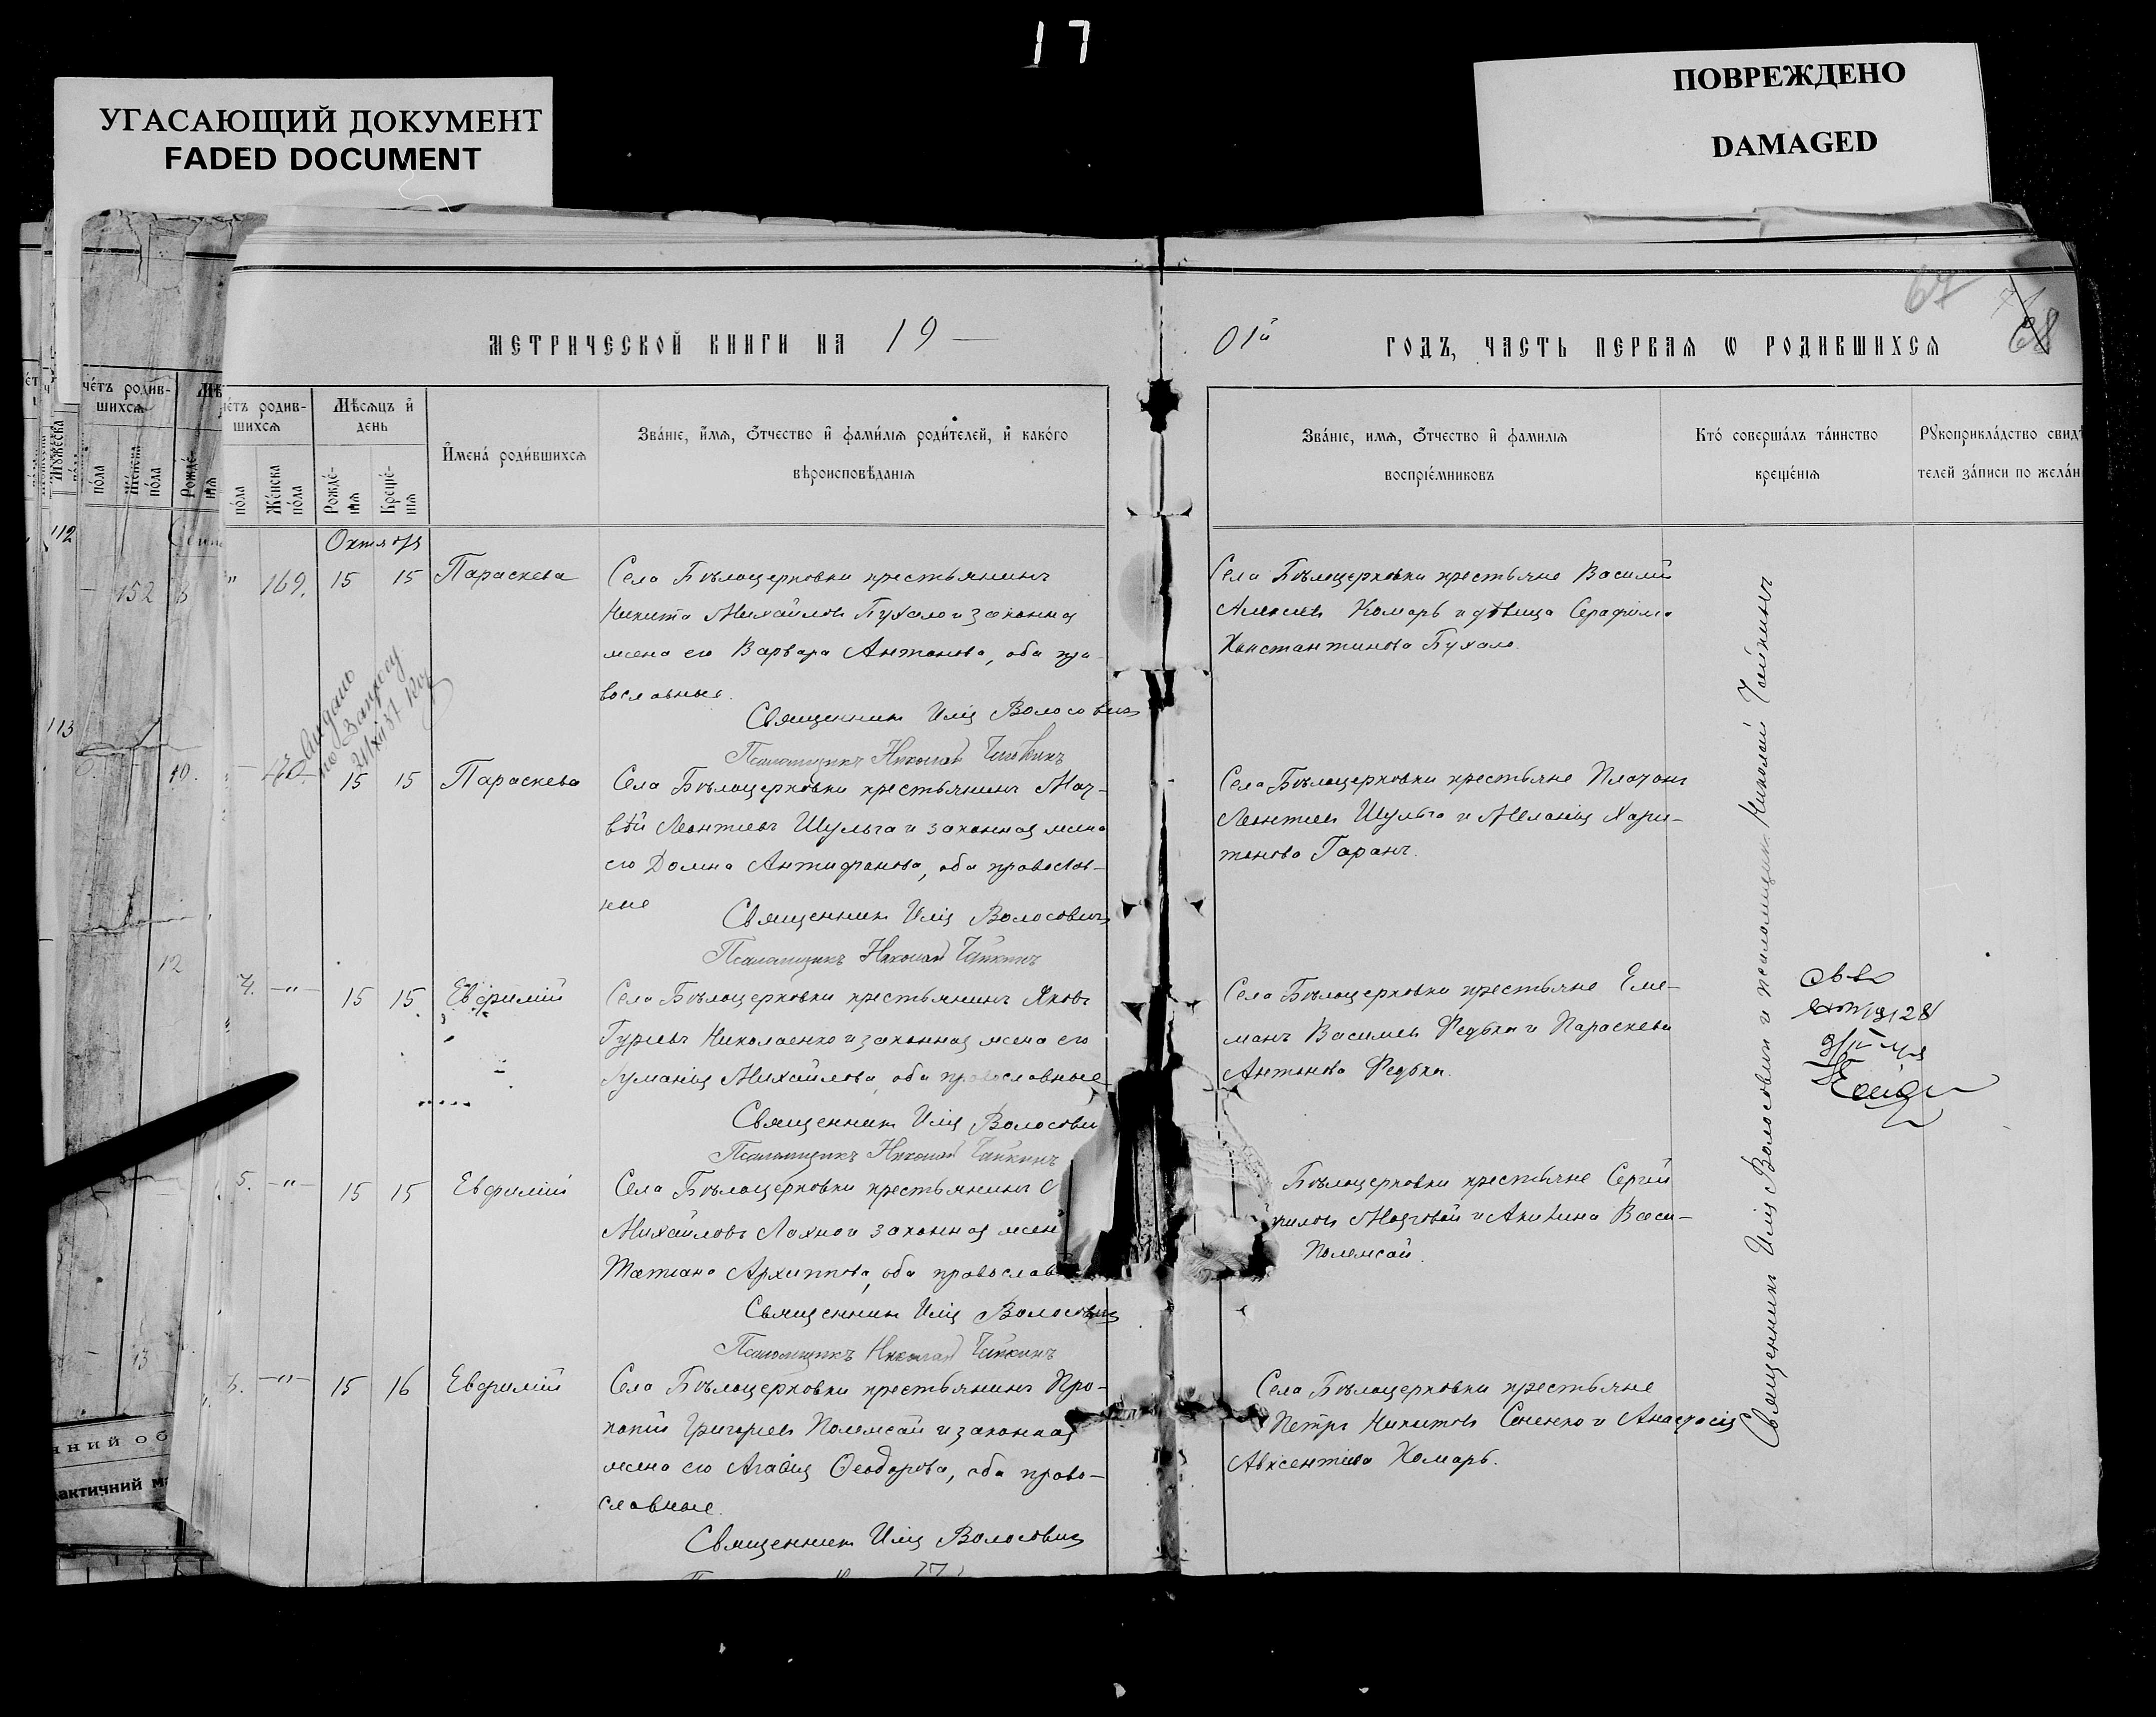 17
УГАСАЮЩИЙ ДОКУМЕНТ
FADED DOCUMENT
ПОВРЕЖДЕНО
DAMAGED
67
68
МЕТРИЧЕСКОЙ КНИГИ НА 19 —
01й ГОДЪ, ЧАСТЬ ПЕРВАЯ Ѡ РОДИВШИХСЯ
четъ родив-
шихся
Мѣсяцъ и
день
Имена родившихся
Званіе, имя, отчество и фамилія родителей, и какого
вѣроисповѣданія
пола
Женска пола
Рожде-
нія
Креще-
нія
Званіе, имя, отчество и фамилія
воспріемниковъ
Кто совершалъ таинство
крещенія
Рукоприкладство свид
телей записи по желан
112
152
113
40.
12
13
Октября
" 169. 15 15 Параскева
Села Бѣлоцерковки крестьянинъ
Никита Михайловъ Пухало и законная
жена его Варвара Антонова, оба пра-
вославные.
Священникъ Илія Волосовичъ
Псаломщикъ Николай Чайкинъ
Села Бѣлоцерковки крестьяне Василій
Алексіевъ Комарь и дѣвица Серафима
Константинова Пухало.
Выдано
по Запросу
15 15 Параскева
Села Бѣлоцерковки крестьянинъ Мат-
вѣй Леонтіевъ Шульга и законная жена
его Домна Антифанова, оба православ-
ные
Священникъ Илія Волосовичъ
Псаломщикъ Николай Чайкинъ
Села Бѣлоцерковки крестьяне Платонъ
Леонтіевъ Шульга и Меланія Хари-
тонова Гаранъ.
4. —"— 15 15. Евфимій
Села Бѣлоцерковки крестьянинъ Яковъ
Гуріевъ Николаенко и законная жена его
Михайлова, оба православные
Священникъ Илія Волосови
Псаломщикъ Николай Чайкинъ
Села Бѣлоцерковки крестьяне Еме-
ланъ Василіевъ Редька и Параскева
Антонова Редька.
5. —"— 15 15 Евфимій
Села Бѣлоцерковки крестьянинъ С
Михайловъ Лахно и законная жен
Татіана Архиппова, оба православ
Священникъ Илія Волосовичъ
Псаломщикъ Николай Чайкинъ
Бѣлоцерковки крестьяне Сергій
Мозговой и Акилина Васи-
Полежай.
—"— 15 16 Евфимій
Села Бѣлоцерковки крестьянинъ Про-
копій Григоріевъ Полежай и законная
жена его Агафія Ѳеодорова, оба право-
славные.
Священникъ Илія Волосовичъ
Села Бѣлоцерковки крестьяне
Петръ Никитовъ Сененко и Анастасія
Авксентіева Комарь.
Священникъ Илія Волосовичъ и псаломщикъ Николай Чайкинъ